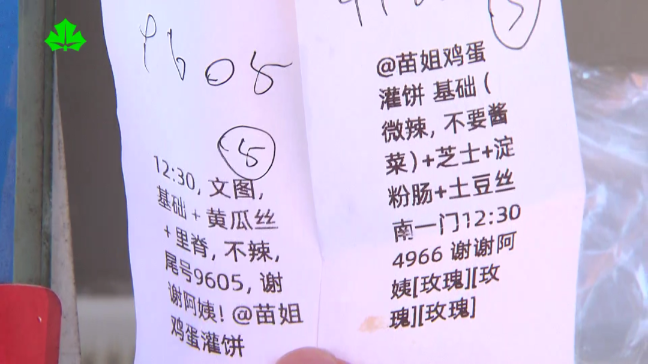 9605
5
12:30, 文图,
基础+黄瓜丝
+里脊, 不辣,
尾号9605, 谢
谢阿姨! @苗姐
鸡蛋灌饼
5
@苗姐鸡蛋
灌饼 基础 (
微辣, 不要酱
菜)+芝士+淀
粉肠+土豆丝
南一门12:30
4966 谢谢阿
姨[玫瑰][玫
瑰][玫瑰]